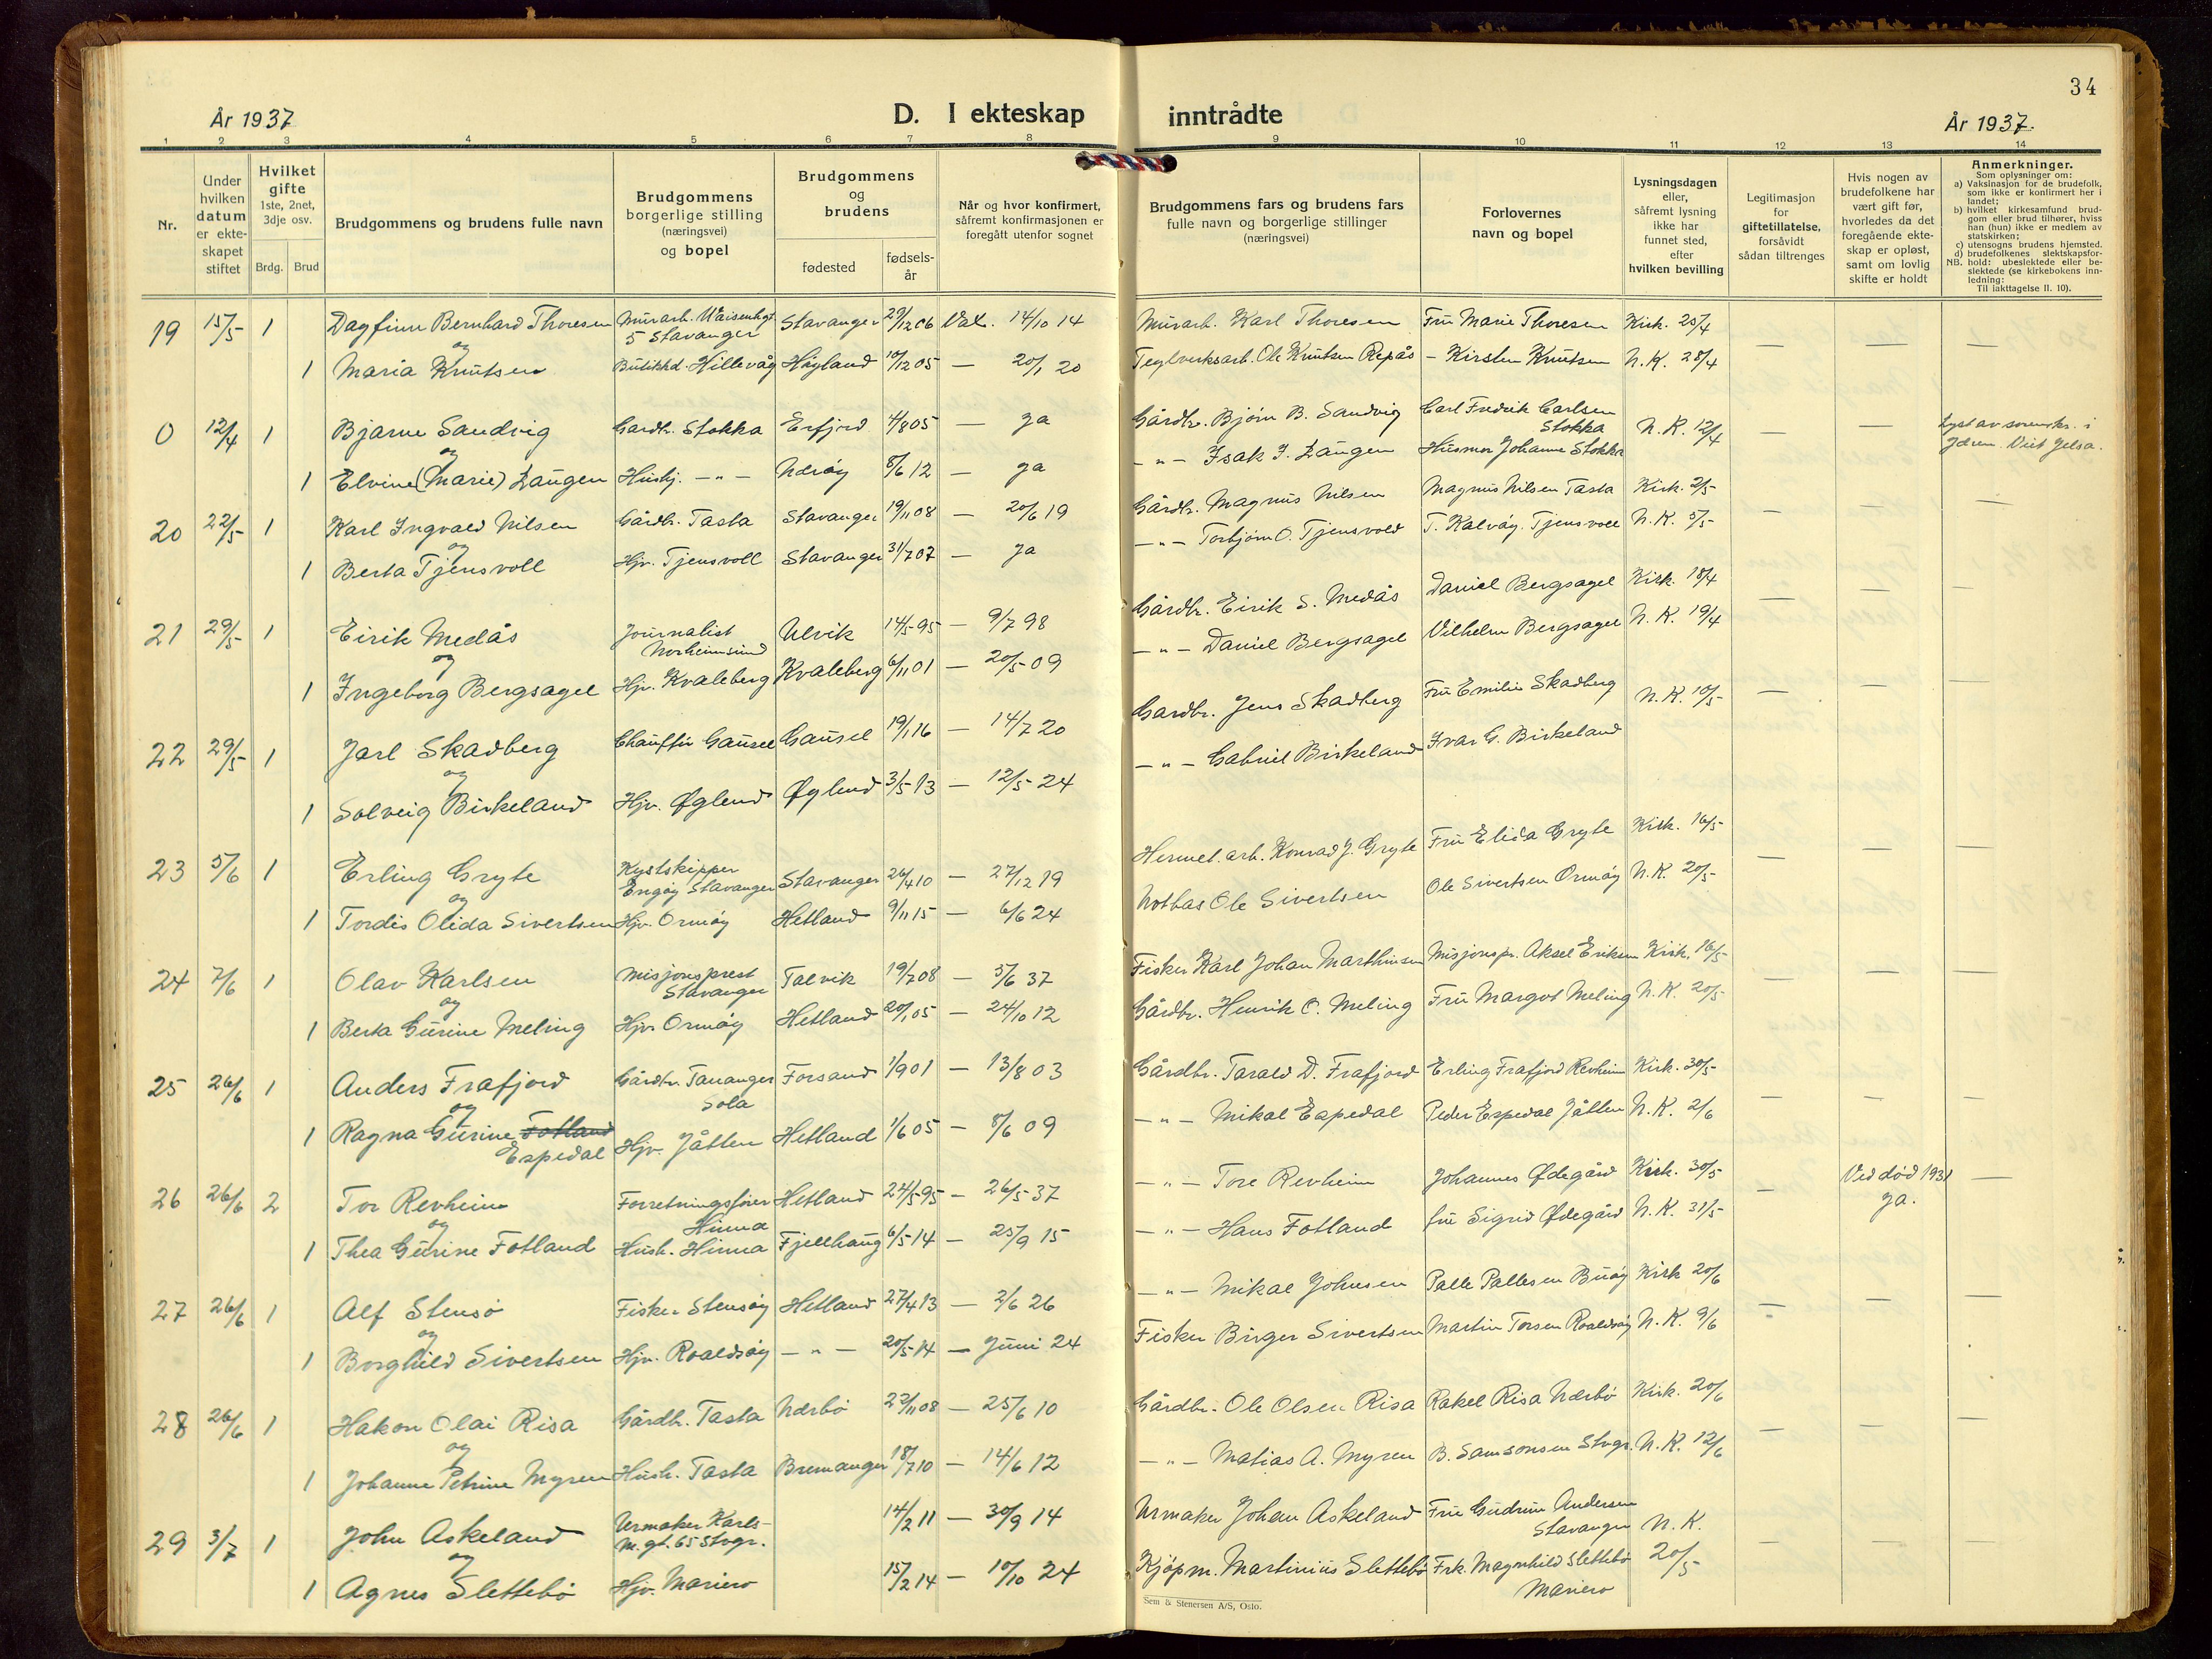 34
År 1937
D. I ekteskap inntrådte
År 1937.
1 2 3 4 5 6 7 8 9 10 11 12 13 14
Nr.
Under hvilken datum er ekteskapet stiftet
Hvilket gifte 1ste, 2net, 3dje osv.
Brdg. Brud
Brudgommens og brudens fulle navn
Brudgommens borgerlige stilling (næringsvei) og bopel
Brudgommens og brudens
fødested
fødselsår
Når og hvor konfirmert, såfremt konfirmasjonen er foregått utenfor sognet
Brudgommens fars og brudens fars fulle navn og borgerlige stillinger (næringsvei)
Forlovernes navn og bopel
Lysningsdagen eller, såfremt lysning ikke har funnet sted, efter hvilken bevilling
Legitimasjon for giftetillatelse, forsåvidt sådan tiltrenges
Hvis nogen av brudefolkene har vært gift før, hvorledes da det foregående ekteskap er opløst, samt om lovlig skifte er holdt
Anmerkninger.
Som oplysninger om:
a) Vaksinasjon for de brudefolk, som ikke er konfirmert her i landet;
b) hvilket kirkesamfund brudgom eller brud tilhører, hviss han (hun) ikke er medlem av statskirken;
c) utensogns brudens hjemsted.
d) brudefolkenes slektskapsforhold: ubeslektede eller beslektede (se kirkebokens innledning:
NB.
Til iakttagelse II. 10).
19 15/5 1 Dagfinn Bernhard Thoresen Murarb. Waisenhgt. 5 Stavanger Stavanger 29/12 06 Vat. 14/10 14 Murarb. Karl Thoresen Fru Marie Thoresen Kirk. 25/4
og
1 Maria Knutsen Butikkd. Hillevåg Høyland 10/12 05 — 20/1 20 Teglverksarb. Ole Knutsen Repås – Kirsten Knutsen N.K. 28/4 — — —
0 12/4 1 Bjarne Sandvig Gardbr. Stokka Erfjord 4/8 05 — ja Gårdbr. Bjørn B. Sandvig Carl Fredrik Carlsen Stokka N.K. 12/4 — — Lyst av sorenskr. i Jæren. Viet Jelsa.
og
1 Elvine (Marie) Laugen Hushj. – " – Nærøy 8/6 12 — ja – " – Isak I. Laugen Husmor Johanne Stokka
20 22/5 1 Karl Ingvald Nilsen Gårdb. Tasta Stavanger 19/11 08 — 20/6 19 Gårdb. Magnus Nilsen Magnus Nilsen Tasta Kirk. 2/5
og
1 Berta Tjensvoll Hjv. Tjensvoll Stavanger 31/7 07 — ja – " – Torbjørn O. Tjensvold T. Kalvøy. Tjensvoll N.K. 5/5 — — —
21 29/5 1 Eirik Medås Journalist Norheimsund Ulvik 14/5 95 — 9/7 98 Gårdbr. Eirik S. Medås Daniel Bergsagel Kirk. 18/4
og
1 Ingeborg Bergsagel Hjv. Kvaleberg Kvaleberg 6/11 01 — 20/5 09 – " – Daniel Bergsagel Vilhelm Bergsagel N.K. 19/4 — — —
22 29/5 1 Jarl Skadberg Chauffør Gausel Gausel 19/1 16 — 14/7 20 Gardbr. Jens Skadberg Fru Emilie Skadberg N.K. 10/5 — — —
og
1 Solveig Birkeland Hjv. Øglend Øglend 3/5 13 — 12/5 24 – " – Gabriel Birkeland Ivar G. Birkeland
23 5/6 1 Erling Gryte Kystskipper Engøy Stavanger Stavanger 26/4 10 — 27/12 19 Hermet. arb. Konrad J. Gryte Fru Elida Gryte Kirk. 16/5
og
1 Tordis Olida Sivertsen Hjv. Ormøy Hetland 9/11 15 — 6/6 24 Notbas Ole Sivertsen Ole Sivertsen Ormøy N.K. 20/5 — — —
24 7/6 1 Olav Karlsen Misjonsprest Stavanger Talvik 19/7 08 — 5/6 37 Fisker Karl Johan Marthinsen Misjonspr. Aksel Eriksen Kirk. 16/5
og
1 Berta Gurine Meling Hjv. Ormøy Hetland 20/1 05 — 24/10 12 Gårdbr. Henrik O. Meling Fru Margot Meling N.K. 20/5 — — —
25 26/6 1 Anders Frafjord Gårdbr. Tananger Sola Forsand 1/9 01 — 13/8 03 Gårdbr. Tarald D. Frafjord Erling Frafjord Revheim Kirk. 30/5
og
1 Ragna Gurine Fotland Espedal Hjv. Jåtten Hetland 1/6 05 — 8/6 09 – " – Mikal Espedal Peder Espedal Jåtten N.K. 2/6 — — —
26 26/6 2 Tor Revheim Forretningsfører Hinna Hetland 24/5 95 — 26/5 37 – " – Tore Revheim Johannes Ødegård Kirk. 30/5 — Ved død 1931 ja. —
og
1 Thea Gurine Fotland Hush. Hinna Fjellhaug 6/5 14 — 25/9 15 – " – Hans Fotland fru Sigrid Ødegård N.K. 31/5
27 26/6 1 Alf Stensø Fisker Stensøy Hetland 27/4 13 — 2/6 26 – " – Mikal Johnsen Palle Pallesen Buøy Kirk 20/6
og
1 Borghild Sivertsen Hjv. Roaldsøy – " – 20/5 14 — Juni 24 Fisker Birger Sivertsen Martin Torsen Roaldsøy N.K. 9/6 — — —
28 26/6 1 Hakon Olai Risa Gårdb. Tasta Nærbø 22/11 08 — 25/6 10 Gårdbr. Ole Olsen Risa Rakel Risa Nærbø Kirk. 20/6
og
1 Johanne Petrine Myren Hush. Tasta Bremanger 18/7 10 — 14/6 12 – " – Matias A. Myren B. Samsonsen Stvgr. N.K. 12/6 — — —
29 3/7 1 John Askeland Urmaker Karls-M. gt. 65 Stvgr. 14/2 11 — 30/9 14 Urmaker Johan Askeland Fru Gudrun Andersen Stavanger N.K. 20/5 — — —
og
1 Agnes Slettebø Hjv. Mariero 15/2 14 — 10/10 24 Kjøpm. Martinius Slettebø Frk. Magnhild Slettebø Mariero
Sem & Stenersen A/S, Oslo.